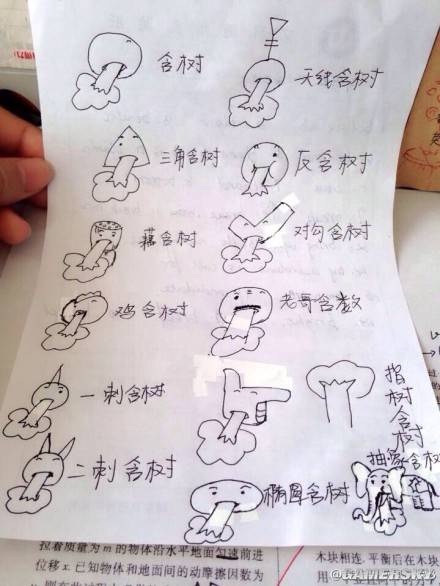 含树
天线含树
三角含树
反含树
藕含树
对勾含树
鸡含树
老哥含数
一刺含树
指树含树
二刺含树
抽象含树
椭圆含树
@GAMERSKY
拉着质量为m的物体沿水平地面匀速前进
位移x已知物体和地面间的动摩擦因数为
木块相连,平衡后在木块